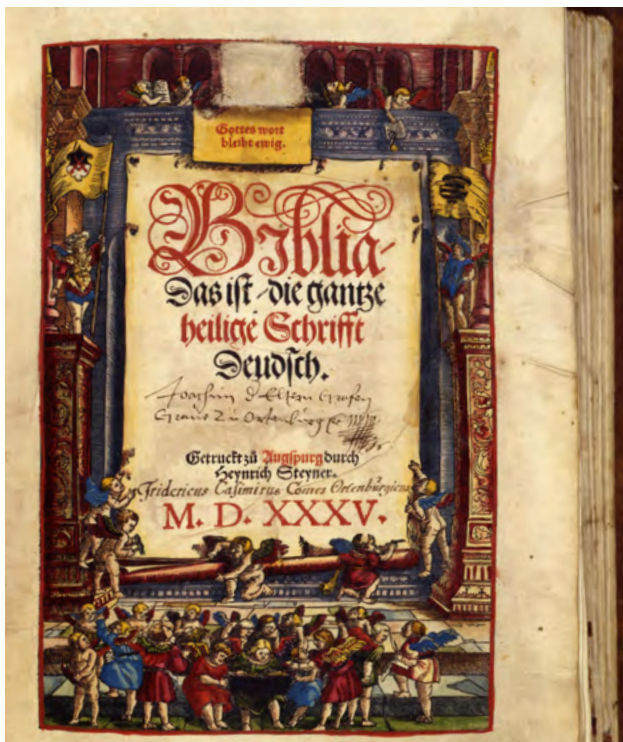 Gottes wort
bleibt ewig.
Biblia
Das ist / die gantze
heilige Schrifft
Deudsch.
Joachim d Elter Grafen
Graue zu Ortenburg
Getruckt zů Augspurg durch
Heynrich Steyner.
Fridericus Casimirus Comes Ortenburgicus
M. D. XXXV.